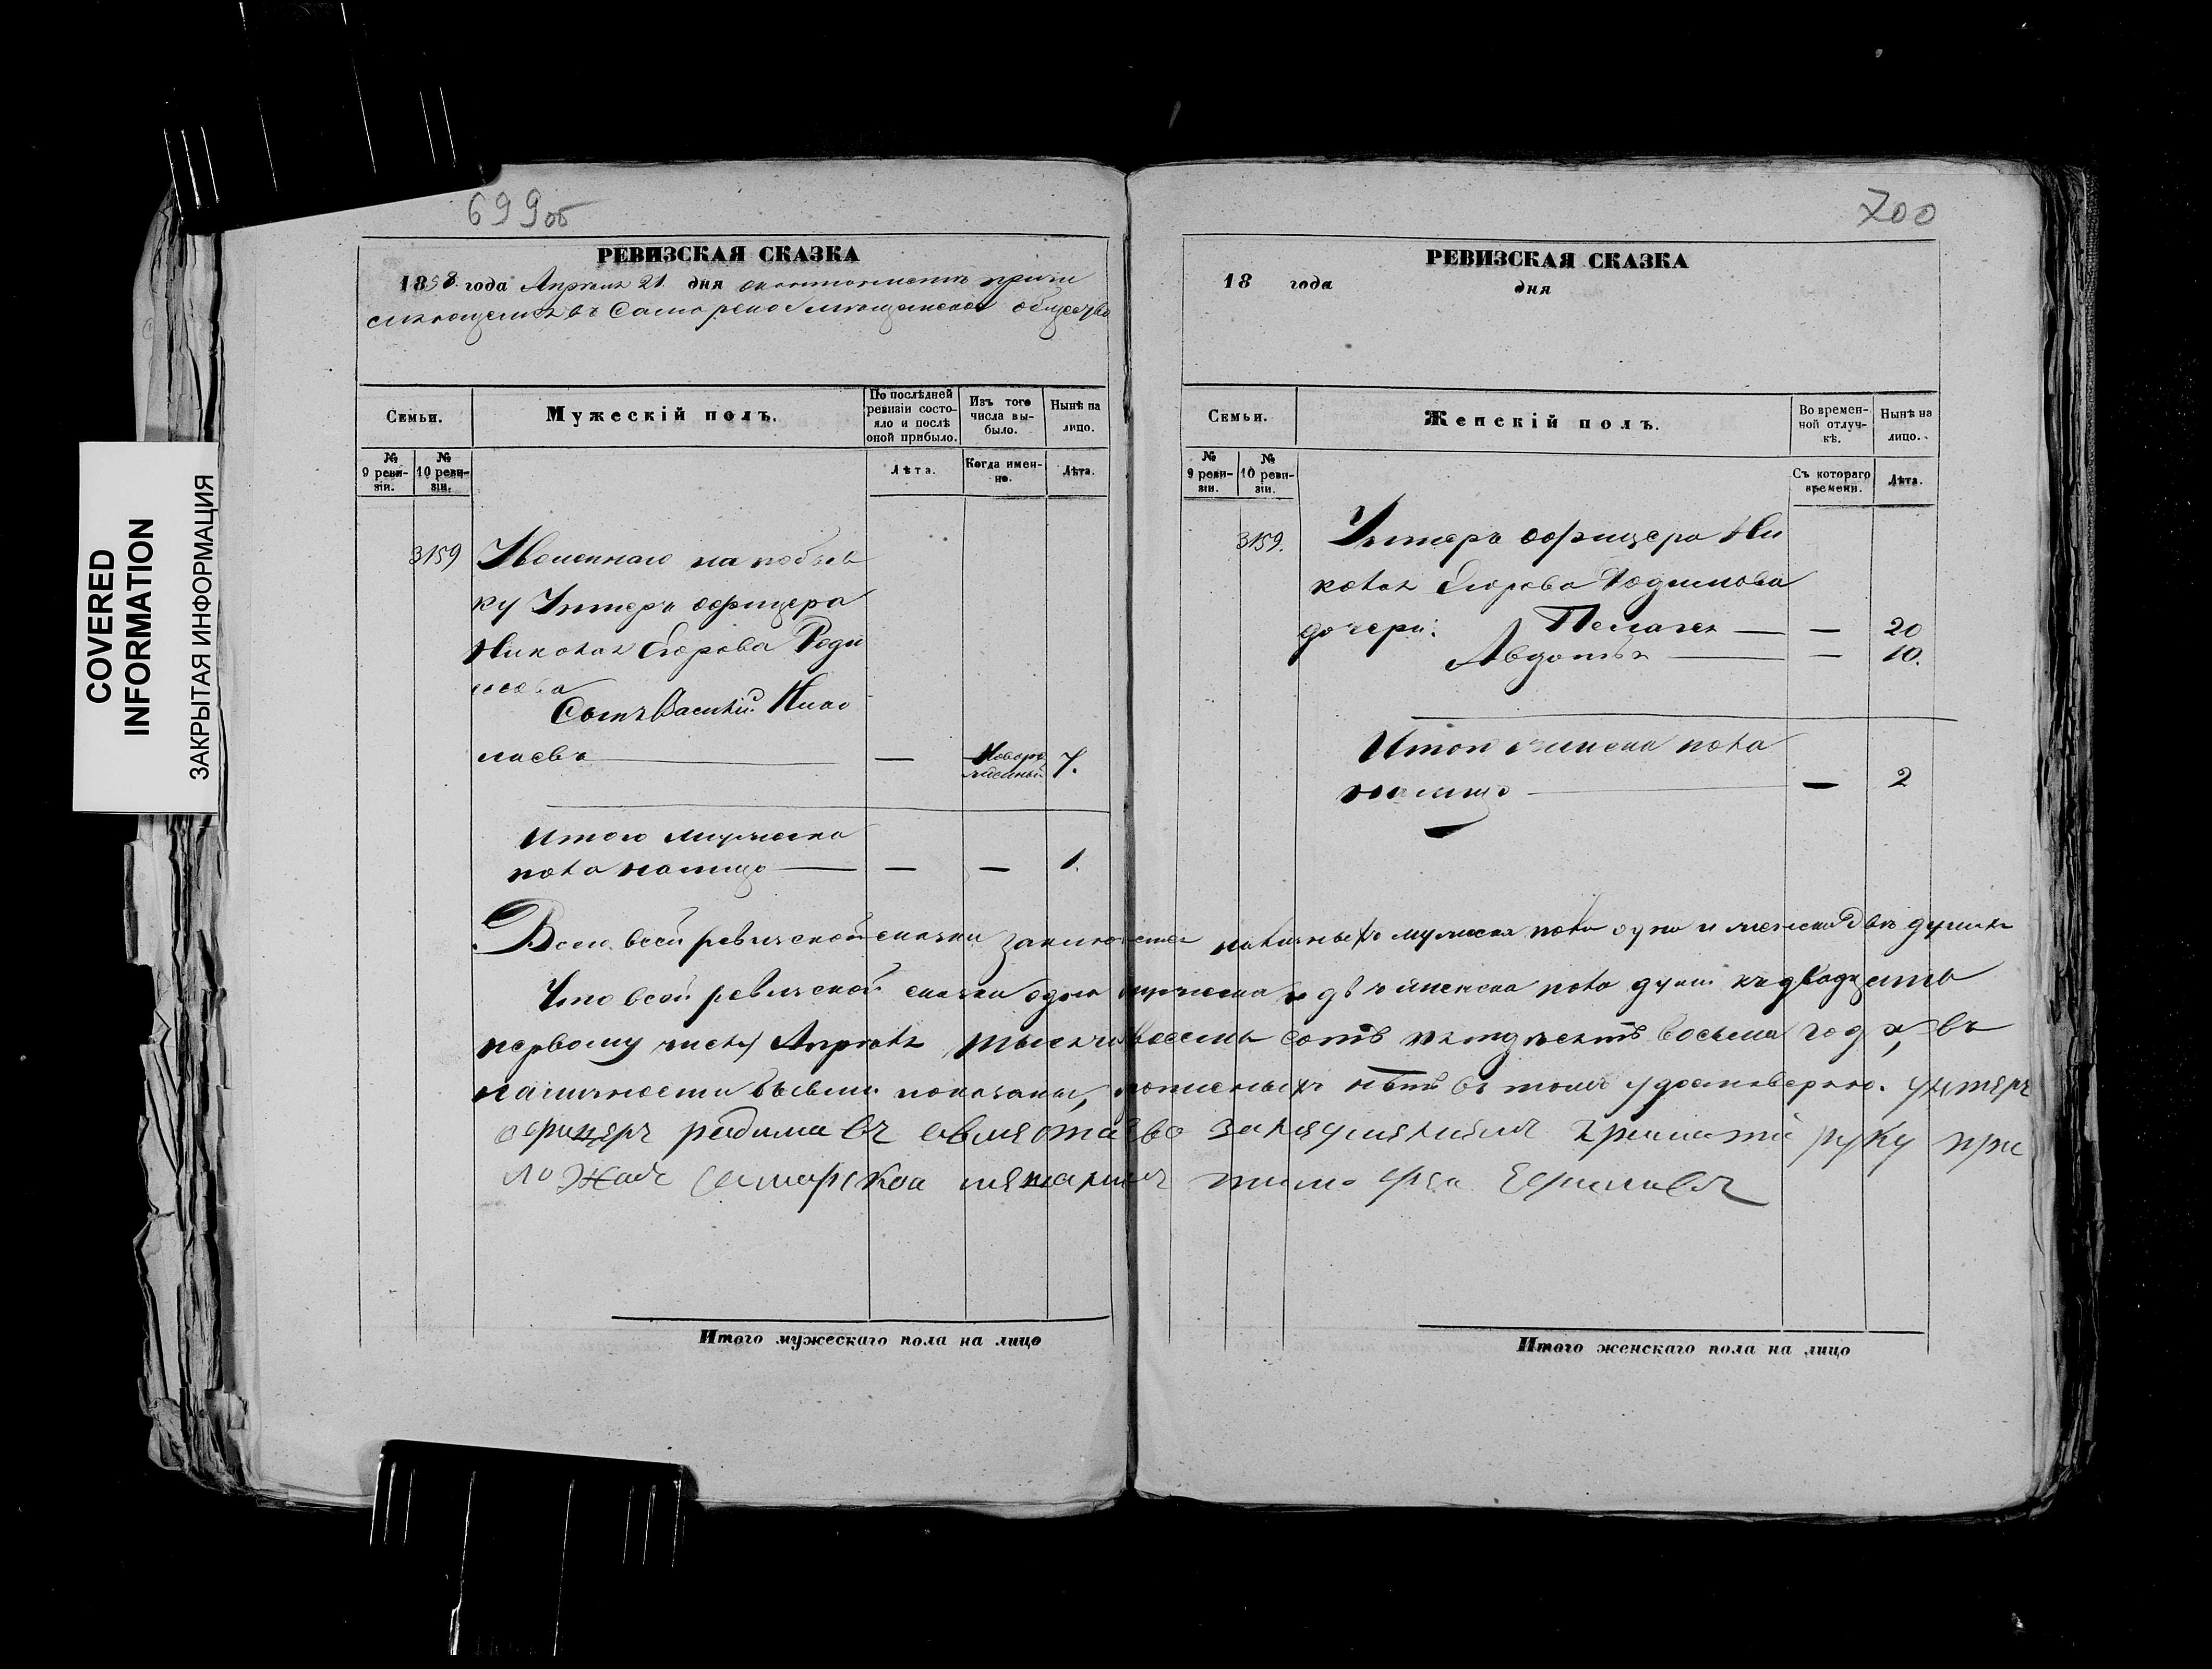 COVERED
INFORMATION
ЗАКРЫТАЯ ИНФОРМАЦИЯ
699об
РЕВИЗСКАЯ СКАЗКА
1858 года Апреля 21 дня причи
въ общество
Семьи.
Мужескій полъ.
По послѣдней ревизіи состо-
яло и послѣ
оной прибыло.
Изъ того
числа вы-
было.
Нынѣ на
лицо.
№
9 реви-
зіи.
№
10 реви-
зіи.
Лѣта.
Когда имен-
но.
Лѣта.
3159
на
ку Унтеръ офицера
Николая Егорова Роди
Сынъ Василій Нико
лаевъ — — Новоро
жденный 7.
Итого мужеска
пола налицо — — — 1.
700
РЕВИЗСКАЯ СКАЗКА
18 года дня
Семьи.
Женскій полъ.
Во времен-
ной отлуч-
кѣ.
Нынѣ на
лицо.
№
9 реви-
зіи.
№
10 реви-
зіи.
Съ котораго
времени.
Лѣта.
3159.
Унтеръ офицера Ни
колая Егорова Родимова
дочери: Пелагея — — 20
Авдотья — — 10.
Итого женска пола
налицо — — 2
Всего всей ревизской сказки заключается наличныхъ мужеска пола одна и женска двѣ души
Что всей ревизской сказки одна мужеска и двѣ женска пола души къ двадцать
первому числу Апреля тысяча восемь сотъ пятдесятъ восьма года, въ
наличности бывши показаны, нѣтъ въ томъ удостоверяю. унтеръ
офицеръ родимовъ руку при
ложилъ самарской
Итого мужескаго пола на лицо
Итого женскаго пола на лицо